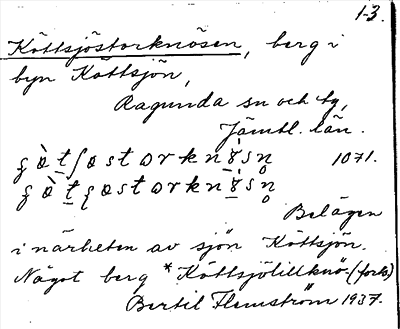 1-3.
Köttsjöstorknösen, berg i
byn Köttsjön,
Ragunda sn och tg,
Jämtl. län.
1071.
Belägen
i närheten av sjön Köttsjön.
Något berg *Köttsjölillknö-(forts)
Bertil Flemström 1937.